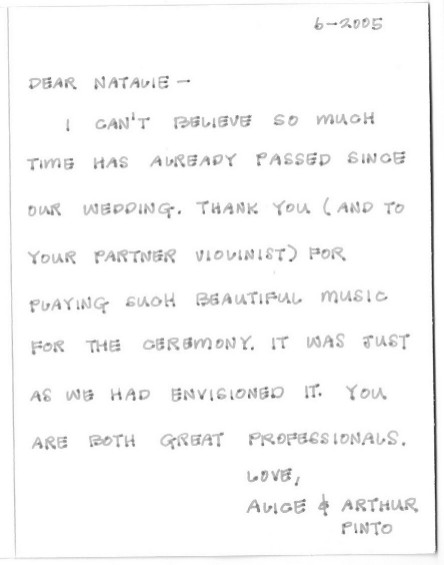 6-2005
DEAR NATALIE -
I CAN'T BELIEVE SO MUCH
TIME HAS ALREADY PASSED SINCE
OUR WEDDING. THANK YOU (AND TO
YOUR PARTNER VIOLINIST) FOR
PLAYING SUCH BEAUTIFUL MUSIC
FOR THE CEREMONY. IT WAS JUST
AS WE HAD ENVISIONED IT. YOU
ARE BOTH GREAT PROFESSIONALS.
LOVE,
ALICE & ARTHUR
PINTO